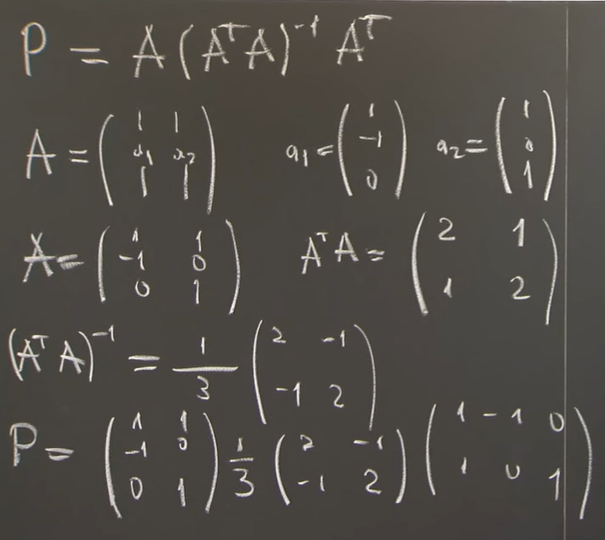 P = A (AᵀA)⁻¹ Aᵀ
A = ( | | ; a₁ a₂ ; | | ) a₁ = ( 1 ; -1 ; 0 ) a₂ = ( 1 ; 0 ; 1 )
A = ( 1 1 ; -1 0 ; 0 1 ) AᵀA = ( 2 1 ; 1 2 )
(AᵀA)⁻¹ = 1/3 ( 2 -1 ; -1 2 )
P = ( 1 1 ; -1 0 ; 0 1 ) 1/3 ( 2 -1 ; -1 2 ) ( 1 -1 0 ; 1 0 1 )